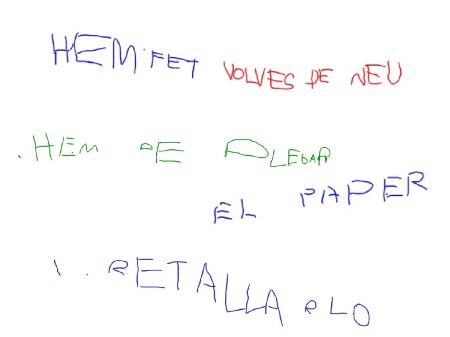 HEM FET VOLVES DE NEU
.HEM DE PLEGAR
EL PAPER
I . RETALLARLO